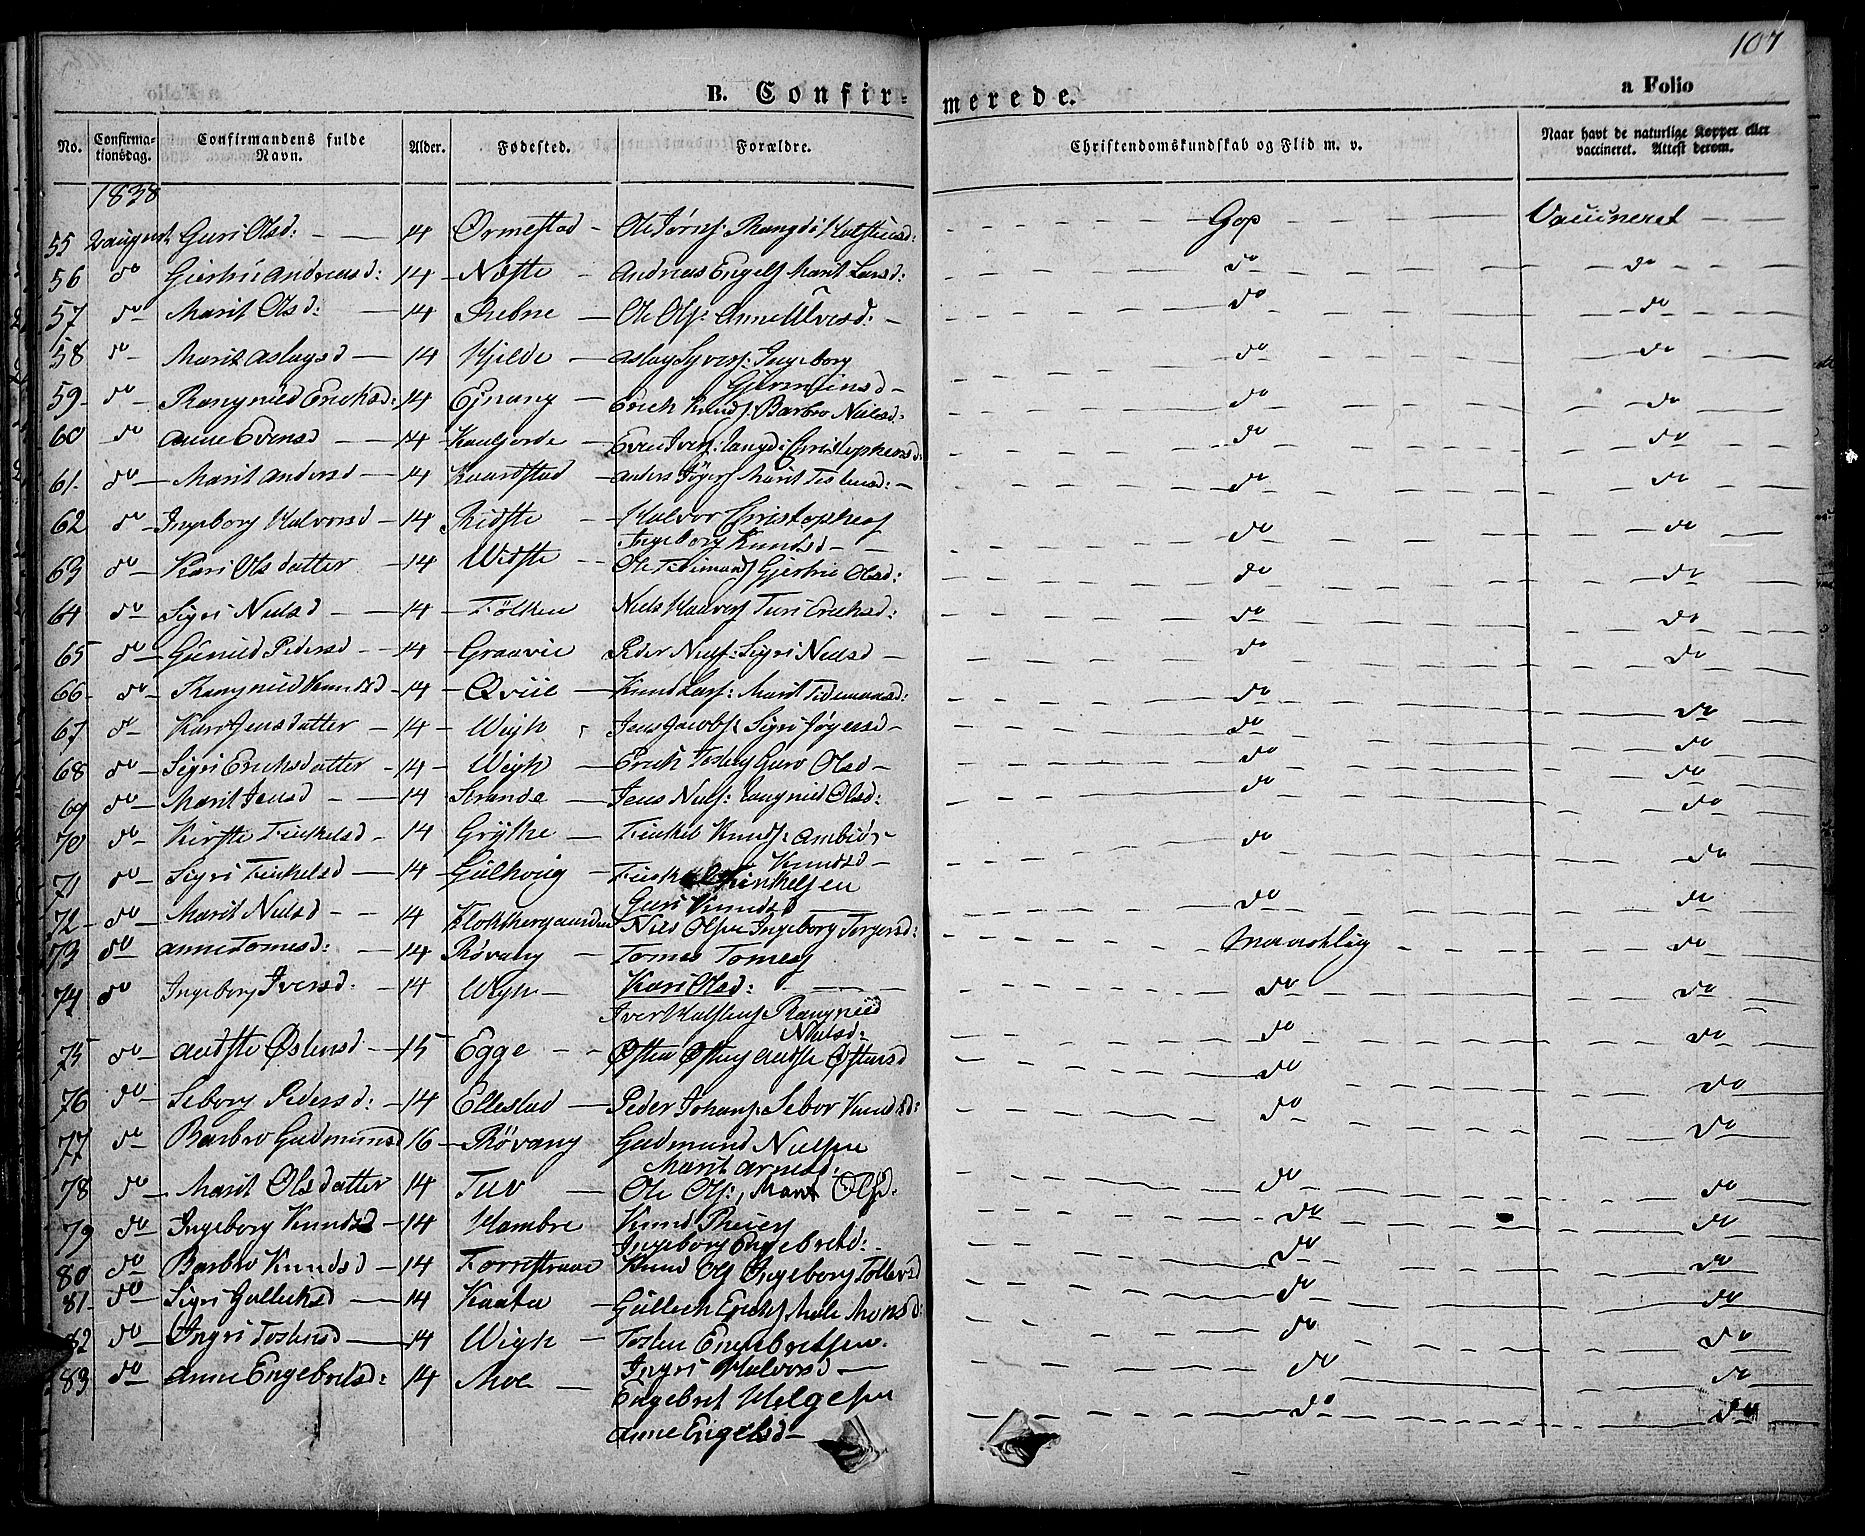 107
B. Confir-
merede.
a Folio
No. Confirma-tionsdag. Confirmandens fulde Navn. Alder. Fødested. Forældre. Christendomskundskab og Flid m. v. Naar havt de naturlige Kopper eller vaccineret. Attest derom.
1838
55 2 august Guri Olsd: 14 Ørmestad Ole Gop Vaccineret
56 do Giertrü Andreasd: 14 Næste Andreas Engels Marit Larsd: do do
57 do Marit Olsd: 14 Rebne Ole Ols: Anne Ulvesd: do do
58 do Marit Aslagsd 14 Hjelde Aslag Syvers: Ingeborg do do
Gjermunsd
59 do Rangnied Ericksd: 14 Ejnang Erich Knuds: Barbro Nielsd: do do
60 do Anne Evensd 14 Even Ivers: Christophersd: do do
61 do Marit Andersd 14 Kaardstad Anders Marit Tostensd: do do
62 do Ingeborg Halvorsd 14 Ridste Halvor Christophes do do
Ingeborg Knudsd
63 do Kari Olsdatter 14 Widste Ole Tidemands Giertrü Olsd: do do
64 do Sigri Nielsd 14 Følken Niels Turi Ericksd: do do
65 do Gunied Pedersd 14 Graavie Peder Niels: Sigri Nielsd do do
66 do Rangnied Knudsd 14 Qviie Knud Lars: Marit Tidemansd: do do
67 do Kari Jensdatter 14 Weigh Jens Jacobs Sigri do do
68 do Sigri Ericksdatter 14 Weigh Erich Guro Olsd do do
69 do Marit Jensd 14 Strande Jens Niels: Rangnied Olsd: do do
70 do Kirste Finkelsd 14 Grythe Finkel Knuds: Ambiør do do
Knudsd
71 do Sigri Finkelsd 14 Gülhvug Finkel Finkelsen do do
Guri Knudsd
72 do Marit Nielsd 14 Klokkergaarden Niels Olsen Ingeborg Torgersd: do do
73 do Anne Tomesd: 14 Røvang Tomes Tomes Maadelig do
74 do Ingeborg Iversd: 14 Weigh Kari Olsd: do do
Iver Halstens Rangnied
Nielsd:
75 do Audste Østensd 15 Egge Østen Østens Audste Østensd do do
76 do Seborg Pedersd: 14 Ellestad Peder Johans: Sebor Knudsd: do do
77 do Barbro Gudmunsd 16 Røvang Gudmund Nielsen do do
Marit Arnesd.
78 do Marit Olsdatter 14 Tuv Ole Ols:, Marit Olsd. do do
79 do Ingeborg Knudsd 14 Hambre Knud do do
Ingeborg Engebretsd:
80 do Barbro Knudsd 14 Forrestraae Knud Ols Ingeborg Tollevsd do do
81 do Sigri Gulleiksd 14 Kaata Gülleich Ericks Mele Monsd: do do
82 do Ingri Tostensd 14 Weigh Tosten Engebretsen do do
Ingri Halvorsd
83 do Anne Engebretsd: 14 Moe Engebret Helgesen do do
Anne Engelsd